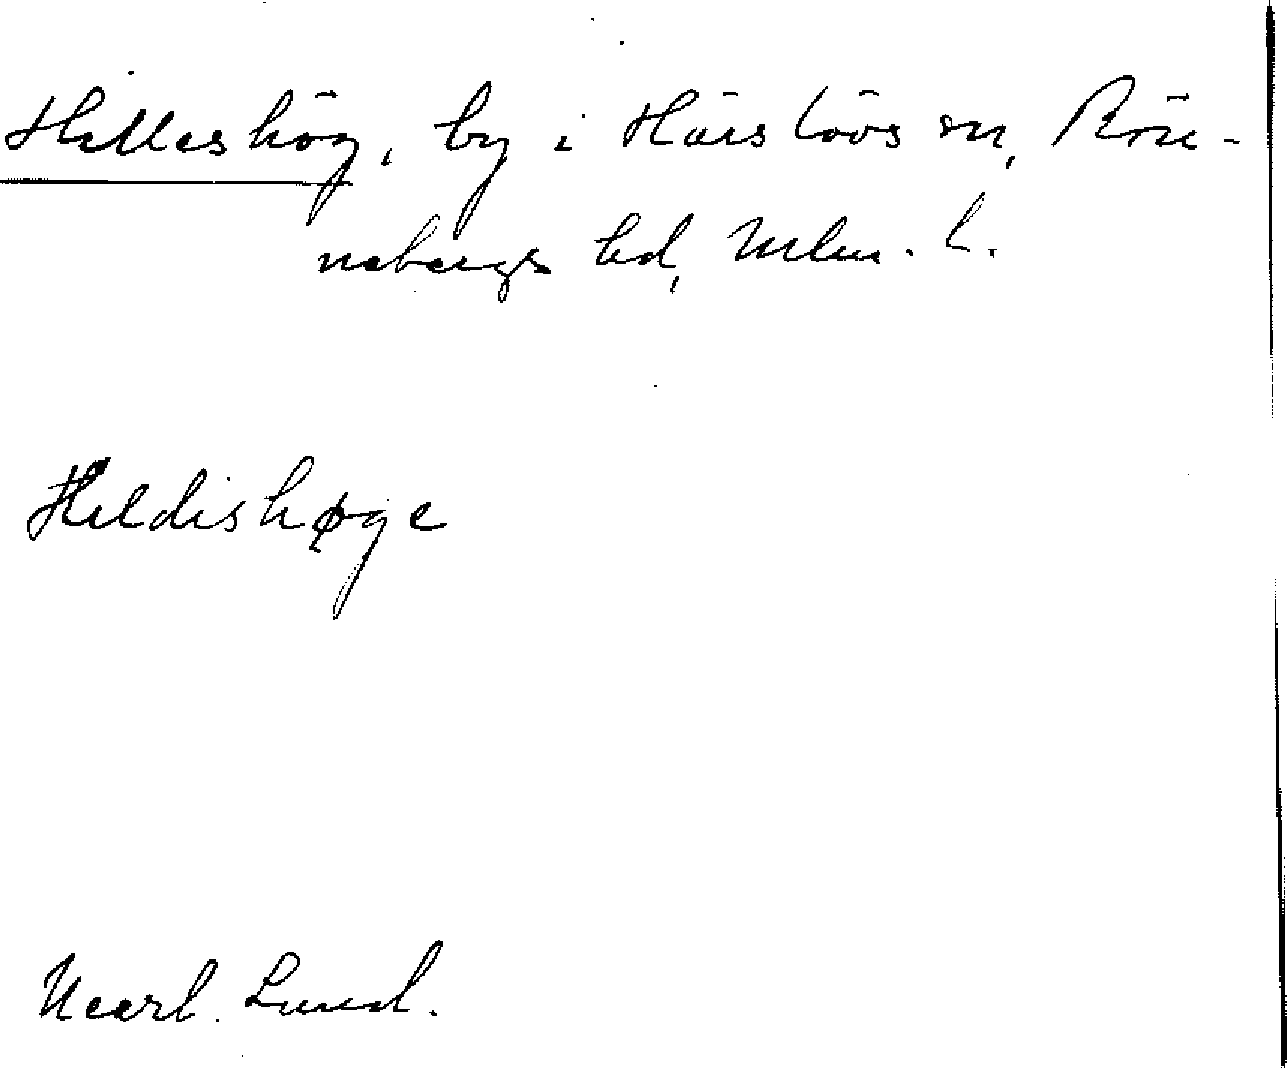 Hilleshög, by i Härslövs sn, Rön-
nebergs hd, Mlm. l.
Hildishøge
Necrl. Lund.